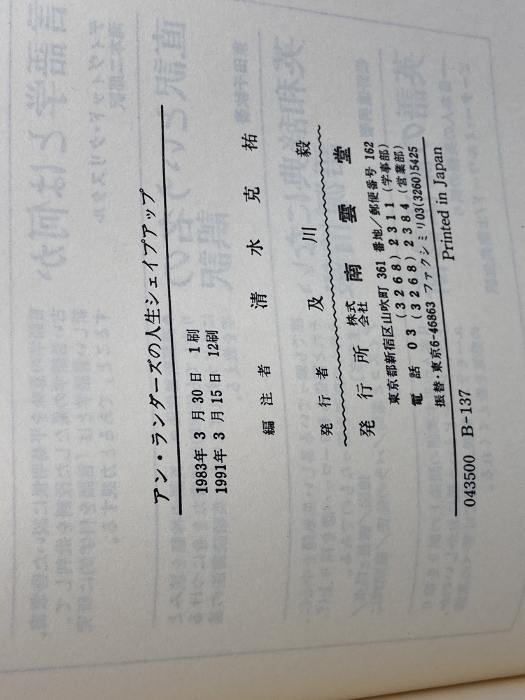 アン・ランダーズの人生シェイプアップ
1983年 3 月 30 日 1 刷
1991年 3 月 15 日 12刷
編 注 者 清 水 克 祐
発 行 者 及 川 毅
発 行 所 株式会社 南 雲 堂
東京都新宿区山吹町 361 番地／郵便番号 162
電 話 03 (3268) 2311 (学事部)
(3268) 2384 (営業部)
振替・東京6-46863 ファクシミリ03(3260)5425
Printed in Japan
043500 B-137